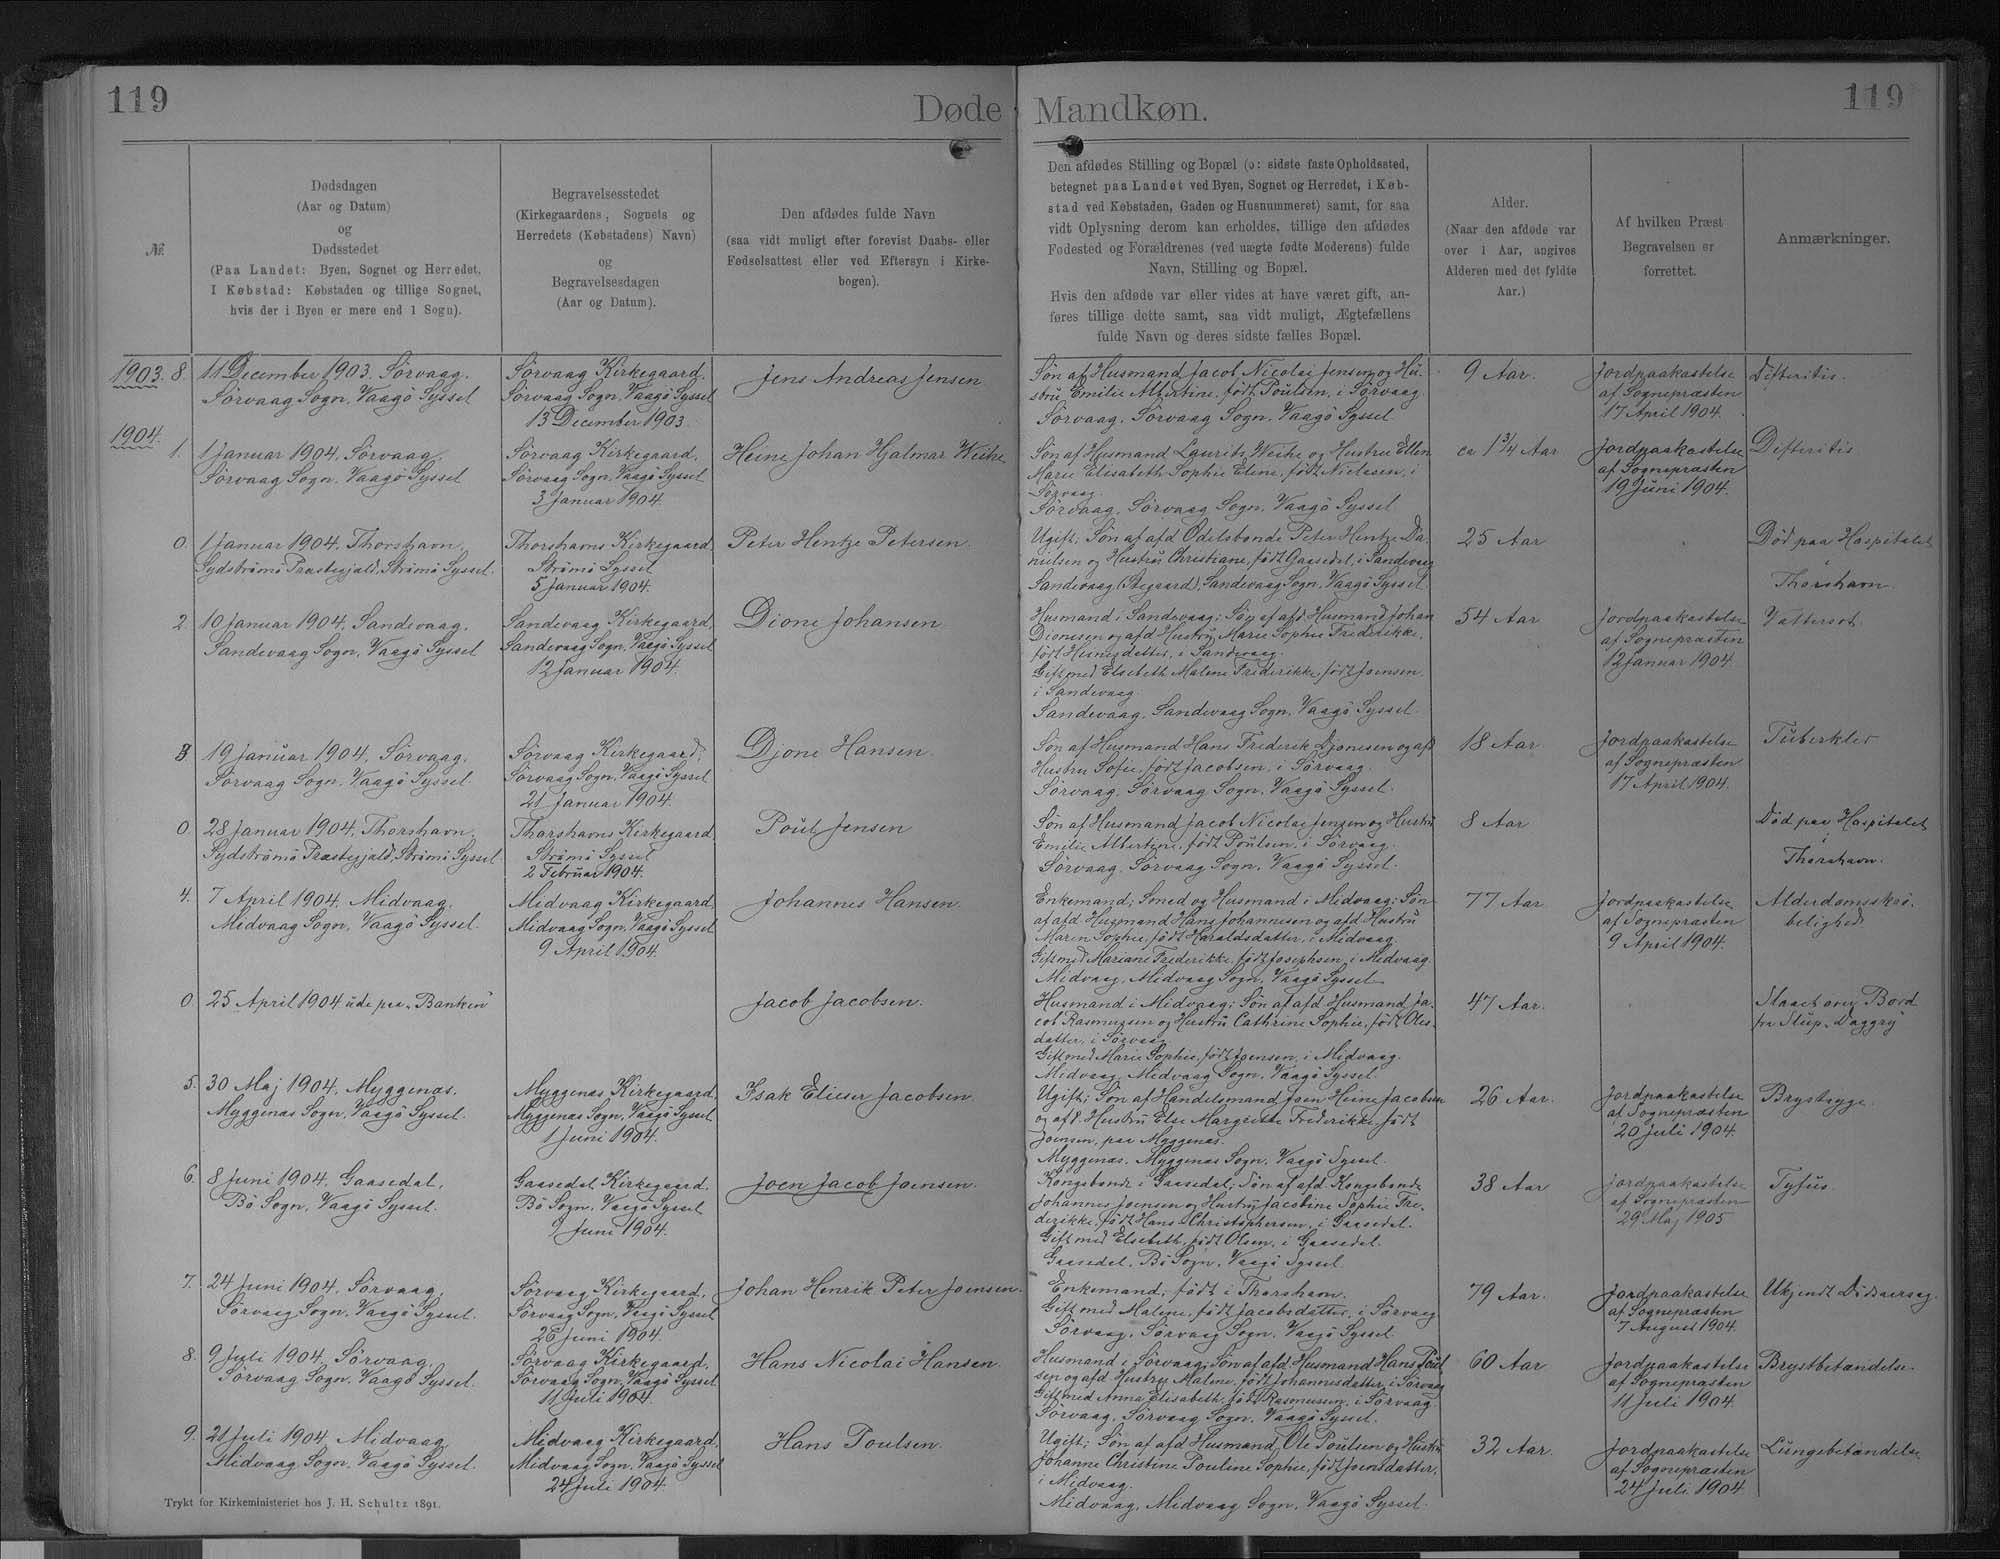 119
Døde
Mandkøn.
119
№
Dødsdagen
(Aar og Datum)
og
Dødsstedet
(Paa Landet: Byen, Sognet og Herredet.
I Købstad: Købstaden og tillige Sognet,
hvis der i Byen er mere end 1 Sogn).
Begravelsesstedet
(Kirkegaardens, Sognets og
Herredets (Købstadens) Navn)
og
Begravelsesdagen
(Aar og Datum).
Den afdødes fulde Navn
(saa vidt muligt efter forevist Daabs- eller
Fødselsattest eller ved Eftersyn i Kirke-
bogen).
Den afdødes Stilling og Bopæl (ɔ: sidste faste Opholdssted,
betegnet paa Landet ved Byen, Sognet og Herredet, i Køb-
stad ved Købstaden, Gaden og Husnummeret) samt, for saa
vidt Oplysning derom kan erholdes, tillige den afdødes
Fødested og Forældrenes (ved uægte fødte Moderens) fulde
Navn, Stilling og Bopæl.
Hvis den afdøde var eller vides at have været gift, an-
føres tillige dette samt, saa vidt muligt, Ægtefællens
fulde Navn og deres sidste fælles Bopæl.
Alder.
(Naar den afdøde var
over 1 Aar, angives
Alderen med det fyldte
Aar.)
Af hvilken Præst
Begravelsen er
forrettet.
Anmærkninger.
1903. 8.
11 December 1903. Sørvaag.
Sørvaag Sogn, Vaagö Syssel
Sørvaag Kirkegaard.
Sørvaag Sogn, Vaagö Syssel
13 December 1903.
Jens Andreas Jensen
Søn af Husmand Jacob Nicolai Jensen og Hu-
stru Emilie Albertine, født Poulsen, i Sørvaag.
Sørvaag, Sørvaag Sogn, Vaagö Syssel
9 Aar.
Jordpaakastelse
af Sognepræsten
17 April 1904.
Difteritis.
1904.
1.
1 Januar 1904, Sørvaag,
Sørvaag Sogn, Vaagö Syssel
Sørvaag Kirkegaard,
Sørvaag Sogn, Vaagö Syssel
3 Januar 1904.
Heine Johan Hjalmar Weihe
Søn af Husmand Laurits Weihe og Hustru Ellen
Marie Elisabeth Sophie Eline, født Nielsen, i
Sørvaag.
Sørvaag, Sørvaag Sogn, Vaagö Syssel
ca 1 3/4 Aar
Jordpaakastelse
af Sognepræsten
19 Juni 1904.
Difteritis
0.
1 Januar 1904, Thorshavn,
Sydströmö Præstegjæld, Strömö Syssel.
Thorshavns Kirkegaard
Strömö Syssel
5 Januar 1904.
Peter Hentze Petersen.
Ugift; Søn af afd Odelsbonde Peter Hentze Da-
nielsen og Hustru Christiane, født Gaasedel, i Sandevaag
Sandevaag (Stegaard), Sandevaag Sogn, Vaagö Syssel.
25 Aar
Död paa Hospitalet
i
Thorshavn.
2
10 Januar 1904, Sandevaag,
Sandevaag Sogn, Vaagö Syssel
Sandevaag Kirkegaard,
Sandevaag Sogn, Vaagö Syssel
12 Januar 1904.
Dione Johansen
Husmand i Sandevaag; Søn af afd Husmand Johan
Dionesen og afd Hustru Marie Sophie Frederikke,
født Heinesdatter, i Sandevaag.
Gift med Elsebeth Malene Friderikke, født Joensen
i Sandevaag.
Sandevaag, Sandevaag Sogn, Vaagö Syssel.
54 Aar
Jordpaakastelse
af Sognepræsten
12 Januar 1904.
Vattersot.
3
19 Januar 1904, Sørvaag,
Sørvaag Sogn, Vaagö Syssel.
Sørvaag Kirkegaard,
Sørvaag Sogn, Vaagö Syssel
21 Januar 1904.
Djone Hansen.
Søn af Husmand Hans Frederik Djonesen og afd
Hustru Sofie, født Jacobsen, i Sørvaag.
Sørvaag, Sørvaag Sogn, Vaagö Syssel.
18 Aar
Jordpaakastelse
af Sognepræsten
17 April 1904.
Tuberkler
0.
28 Januar 1904, Thorshavn,
Sydströmö Præstegjæld, Strömö Syssel
Thorshavns Kirkegaard
Strömö Syssel
2 Februar 1904.
Poul Jensen
Søn af Husmand Jacob Nicolai Jensen og Hustru
Emilie Albertine, født Poulsen, i Sørvaag.
Sørvaag, Sørvaag Sogn, Vaagö Syssel.
8 Aar
Død paa Hospitalet
i
Thorshavn.
4.
7 April 1904, Midvaag,
Midvaag Sogn, Vaagö Syssel.
Midvaag Kirkegaard,
Midvaag Sogn, Vaagö Syssel
9 April 1904.
Johannes Hansen.
Enkemand; Smed og Husmand i Midvaag; Søn
af afd Husmand Hans Johannesen og afd Hustru
Maren Sophie, født Haraldsdatter, i Midvaag.
Gift med Mariane Frederikke, født Josephsen, i Midvaag.
Midvaag, Midvaag Sogn, Vaagö Syssel
77 Aar
Jordpaakastelse
af Sognepræsten
9 April 1904.
Alderdomsskrö-
belighed
0.
25 April 1904 ude paa „Banken"
Jacob Jacobsen.
Husmand i Midvaag; Søn af afd Husmand Ja-
cob Rasmussen og Hustru Cathrine Sophie, født Oles-
datter, i Sørvaag
Gift med Marie Sophie, født Joensen, i Midvaag.
Midvaag, Midvaag Sogn, Vaagö Syssel.
47 Aar.
Slaaet over Bord
fra Slup „Daggry"
5.
30 Maj 1904, Myggenæs,
Myggenæs Sogn, Vaagö Syssel.
Myggenæs Kirkegaard,
Myggenæs Sogn, Vaagö Syssel
1 Juni 1904.
Isak Elieser Jacobsen
Ugift; Søn af Handelsmand Joen Heine Jacobsen
og afd. Hustru Else Margrethe Frederikke, født
Joensen, paa Myggenæs.
Myggenæs, Myggenæs Sogn, Vaagö Syssel.
26 Aar.
Jordpaakastelse
af Sognepræsten
20 Juli 1904.
Brystsyge.
6.
8 Juni 1904, Gaasedal,
Bö Sogn, Vaagö Syssel.
Gaasedal Kirkegaard.
Bö Sogn, Vaagö Syssel
9 Juni 1904.
Joen Jacob Joensen.
Kongsbonde i Gaasedal; Søn af afd. Kongsbonde
Johannes Joensen og Hustru Jacobine Sophie Fre-
derikke, født Hans Christophersen, i Gaasedal.
Gift med Elsebeth, født Olsen, i Gaasedal.
Gaasedal, Bö Sogn, Vaagö Syssel.
38 Aar
Jordpaakastelse
af Sognepræsten
29 Maj 1905
Tyfus.
7.
24 Juni 1904, Sørvaag,
Sørvaag Sogn, Vaagö Syssel.
Sørvaag Kirkegaard,
Sørvaag Sogn, Vaagö Syssel
26 Juni 1904.
Johan Henrik Peter Joensen.
Enkemand, født i Thorshavn.
Gift med Malene, født Jacobsdatter, i Sørvaag
Sørvaag, Sørvaag Sogn, Vaagö Syssel.
79 Aar.
Jordpaakastelse
af Sognepræsten
7 August 1904.
Ukjendt Dødsaarsag.
8.
9 Juli 1904, Sørvaag,
Sørvaag Sogn, Vaagö Syssel.
Sørvaag Kirkegaard,
Sørvaag Sogn, Vaagö Syssel
11 Juli 1904.
Hans Nicolai Hansen.
Husmand i Sørvaag; Søn af afd. Husmand Hans Poul-
sen og afd Hustru Malene, født Johannesdatter, i Sørvaag
Gift med Anna Elisabeth, født Rasmussen, i Sørvaag.
Sørvaag, Sørvaag Sogn, Vaagö Syssel.
60 Aar
Jordpaakastelse
af Sognepræsten
11 Juli 1904.
Brystbetændelse.
9.
21 Juli 1904 Midvaag,
Midvaag Sogn, Vaagö Syssel.
Midvaag Kirkegaard,
Midvaag Sogn, Vaagö Syssel
24 Juli 1904
Hans Poulsen.
Ugift; Søn af afd Husmand Ole Poulsen og Hustru
Johanne Christine Pouline Sophie, født Joensdatter,
i Midvaag.
Midvaag, Midvaag Sogn, Vaagö Syssel.
32 Aar.
Jordpaakastelse
af Sognepræsten
24 Juli 1904
Lungebetændelse
Trykt for Kirkeministeriet hos J. H. Schultz 1891.